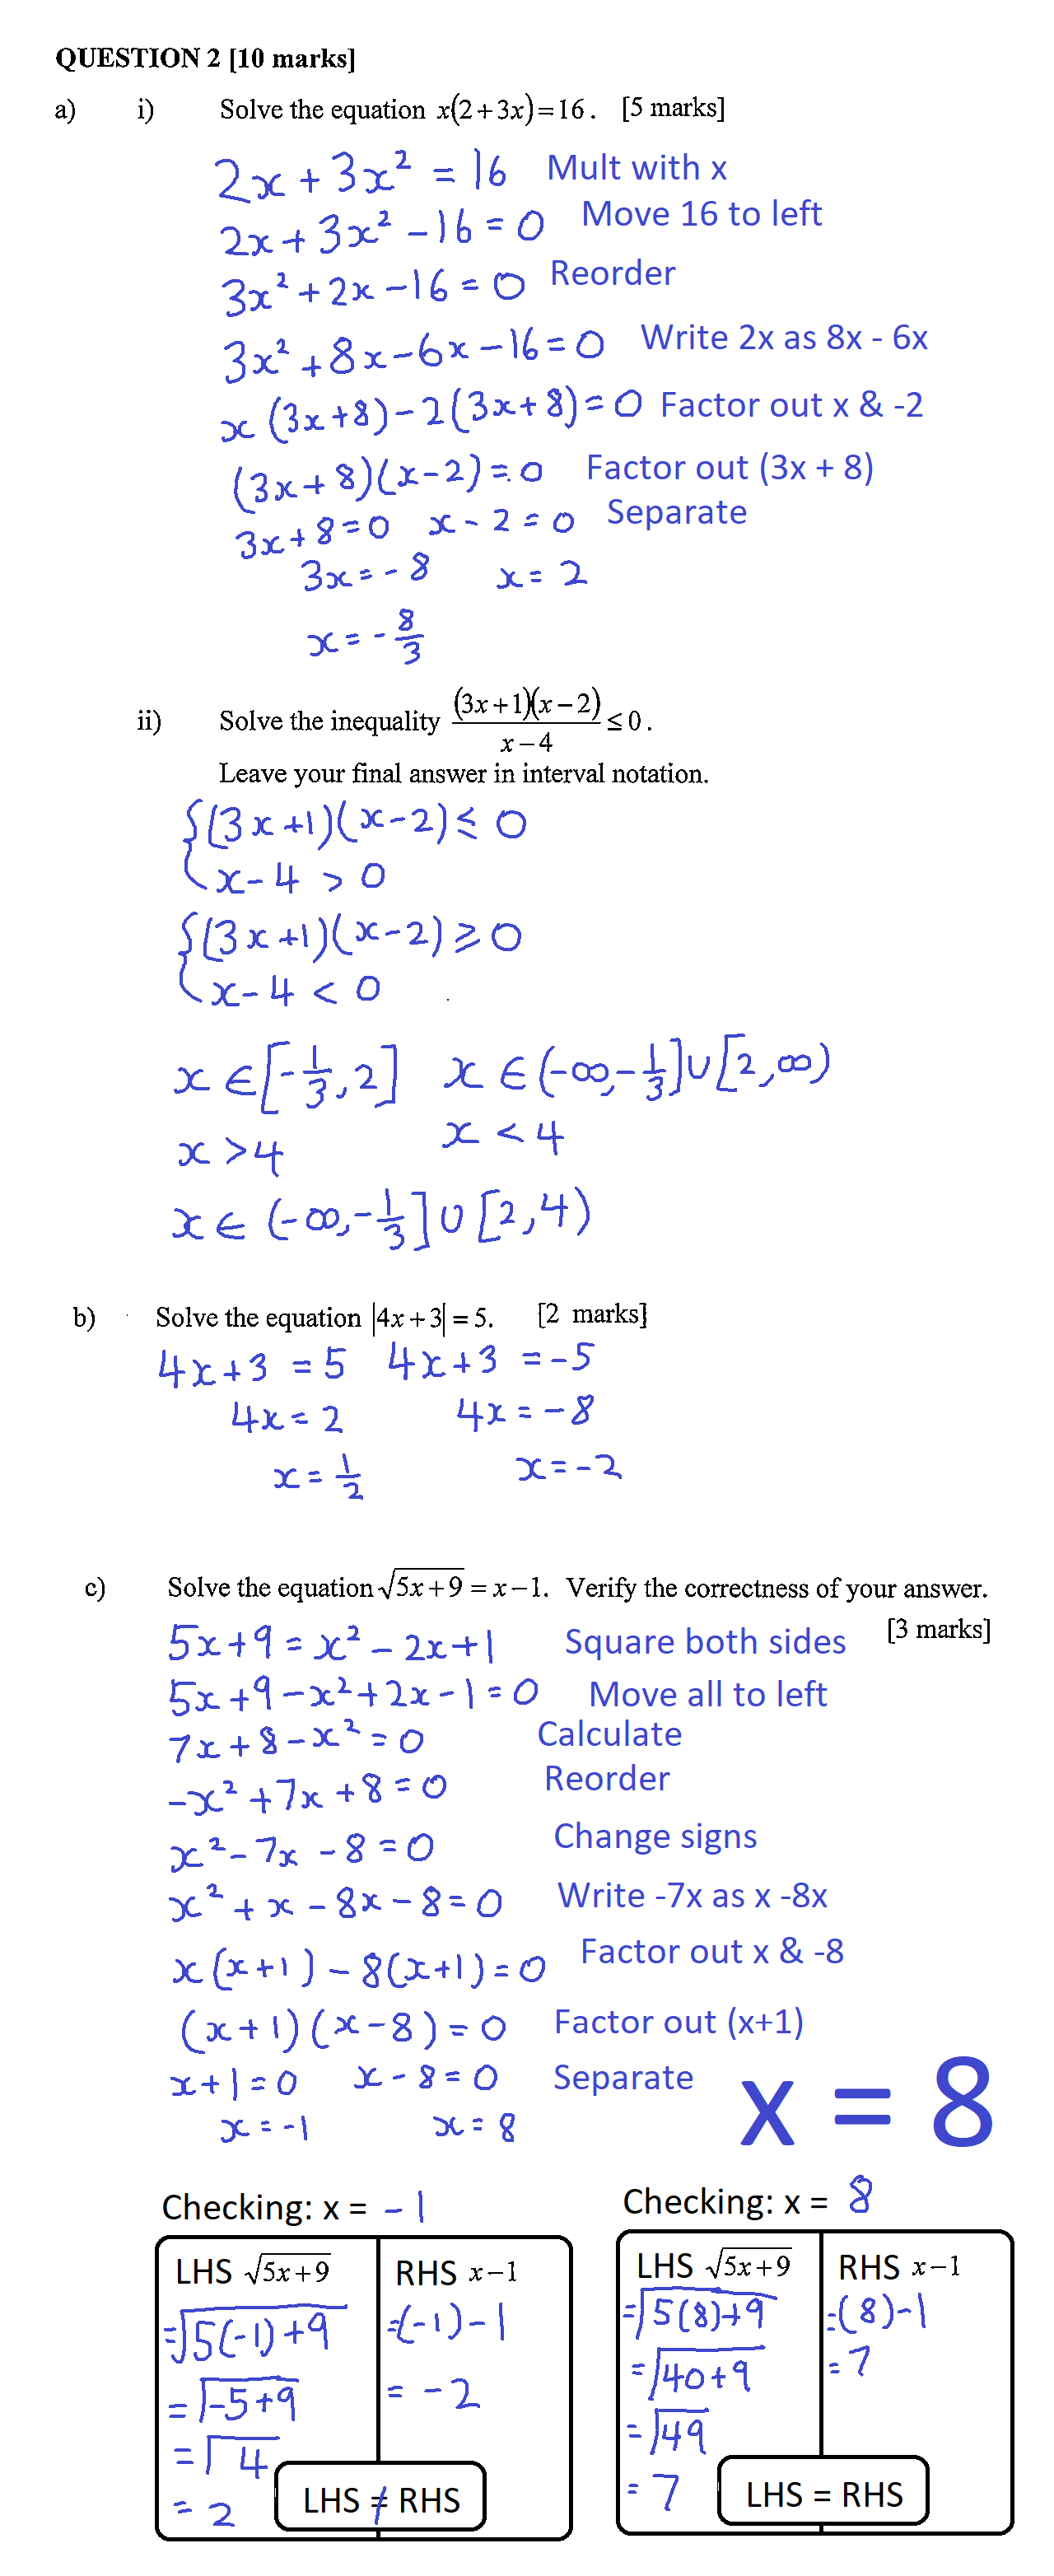 QUESTION 2 [10 marks]
a) i) Solve the equation x(2+3x)=16. [5 marks]
2x + 3x² = 16 Mult with x
2x + 3x² - 16 = 0 Move 16 to left
3x² + 2x - 16 = 0 Reorder
3x² + 8x - 6x - 16 = 0 Write 2x as 8x - 6x
x(3x+8) - 2(3x+8) = 0 Factor out x & -2
(3x+8)(x-2) = 0 Factor out (3x + 8)
3x+8=0 x-2=0 Separate
3x = -8 x = 2
x = -8/3
ii) Solve the inequality (3x+1)(x-2)/(x-4) ≤ 0.
Leave your final answer in interval notation.
{(3x+1)(x-2) ≤ 0
x-4 > 0
{(3x+1)(x-2) ≥ 0
x-4 < 0
x ∈ [-1/3, 2] x ∈ (-∞, -1/3] ∪ [2, ∞)
x > 4 x < 4
x ∈ (-∞, -1/3] ∪ [2, 4)
b) Solve the equation |4x+3| = 5. [2 marks]
4x+3 = 5 4x+3 = -5
4x = 2 4x = -8
x = 1/2 x = -2
c) Solve the equation √(5x+9) = x-1. Verify the correctness of your answer.
[3 marks]
5x+9 = x² - 2x+1 Square both sides
5x+9-x²+2x-1=0 Move all to left
7x+8-x²=0 Calculate
-x²+7x+8=0 Reorder
x²-7x-8=0 Change signs
x²+x-8x-8=0 Write -7x as x -8x
x(x+1)-8(x+1)=0 Factor out x & -8
(x+1)(x-8)=0 Factor out (x+1)
x+1=0 x-8=0 Separate
x=-1 x=8
x = 8
Checking: x = -1
LHS √(5x+9) RHS x-1
=√(5(-1)+9) =(-1)-1
=√(-5+9) = -2
=√4
= 2
LHS ≠ RHS
Checking: x = 8
LHS √(5x+9) RHS x-1
=√(5(8)+9) =(8)-1
=√(40+9) =7
=√49
=7
LHS = RHS